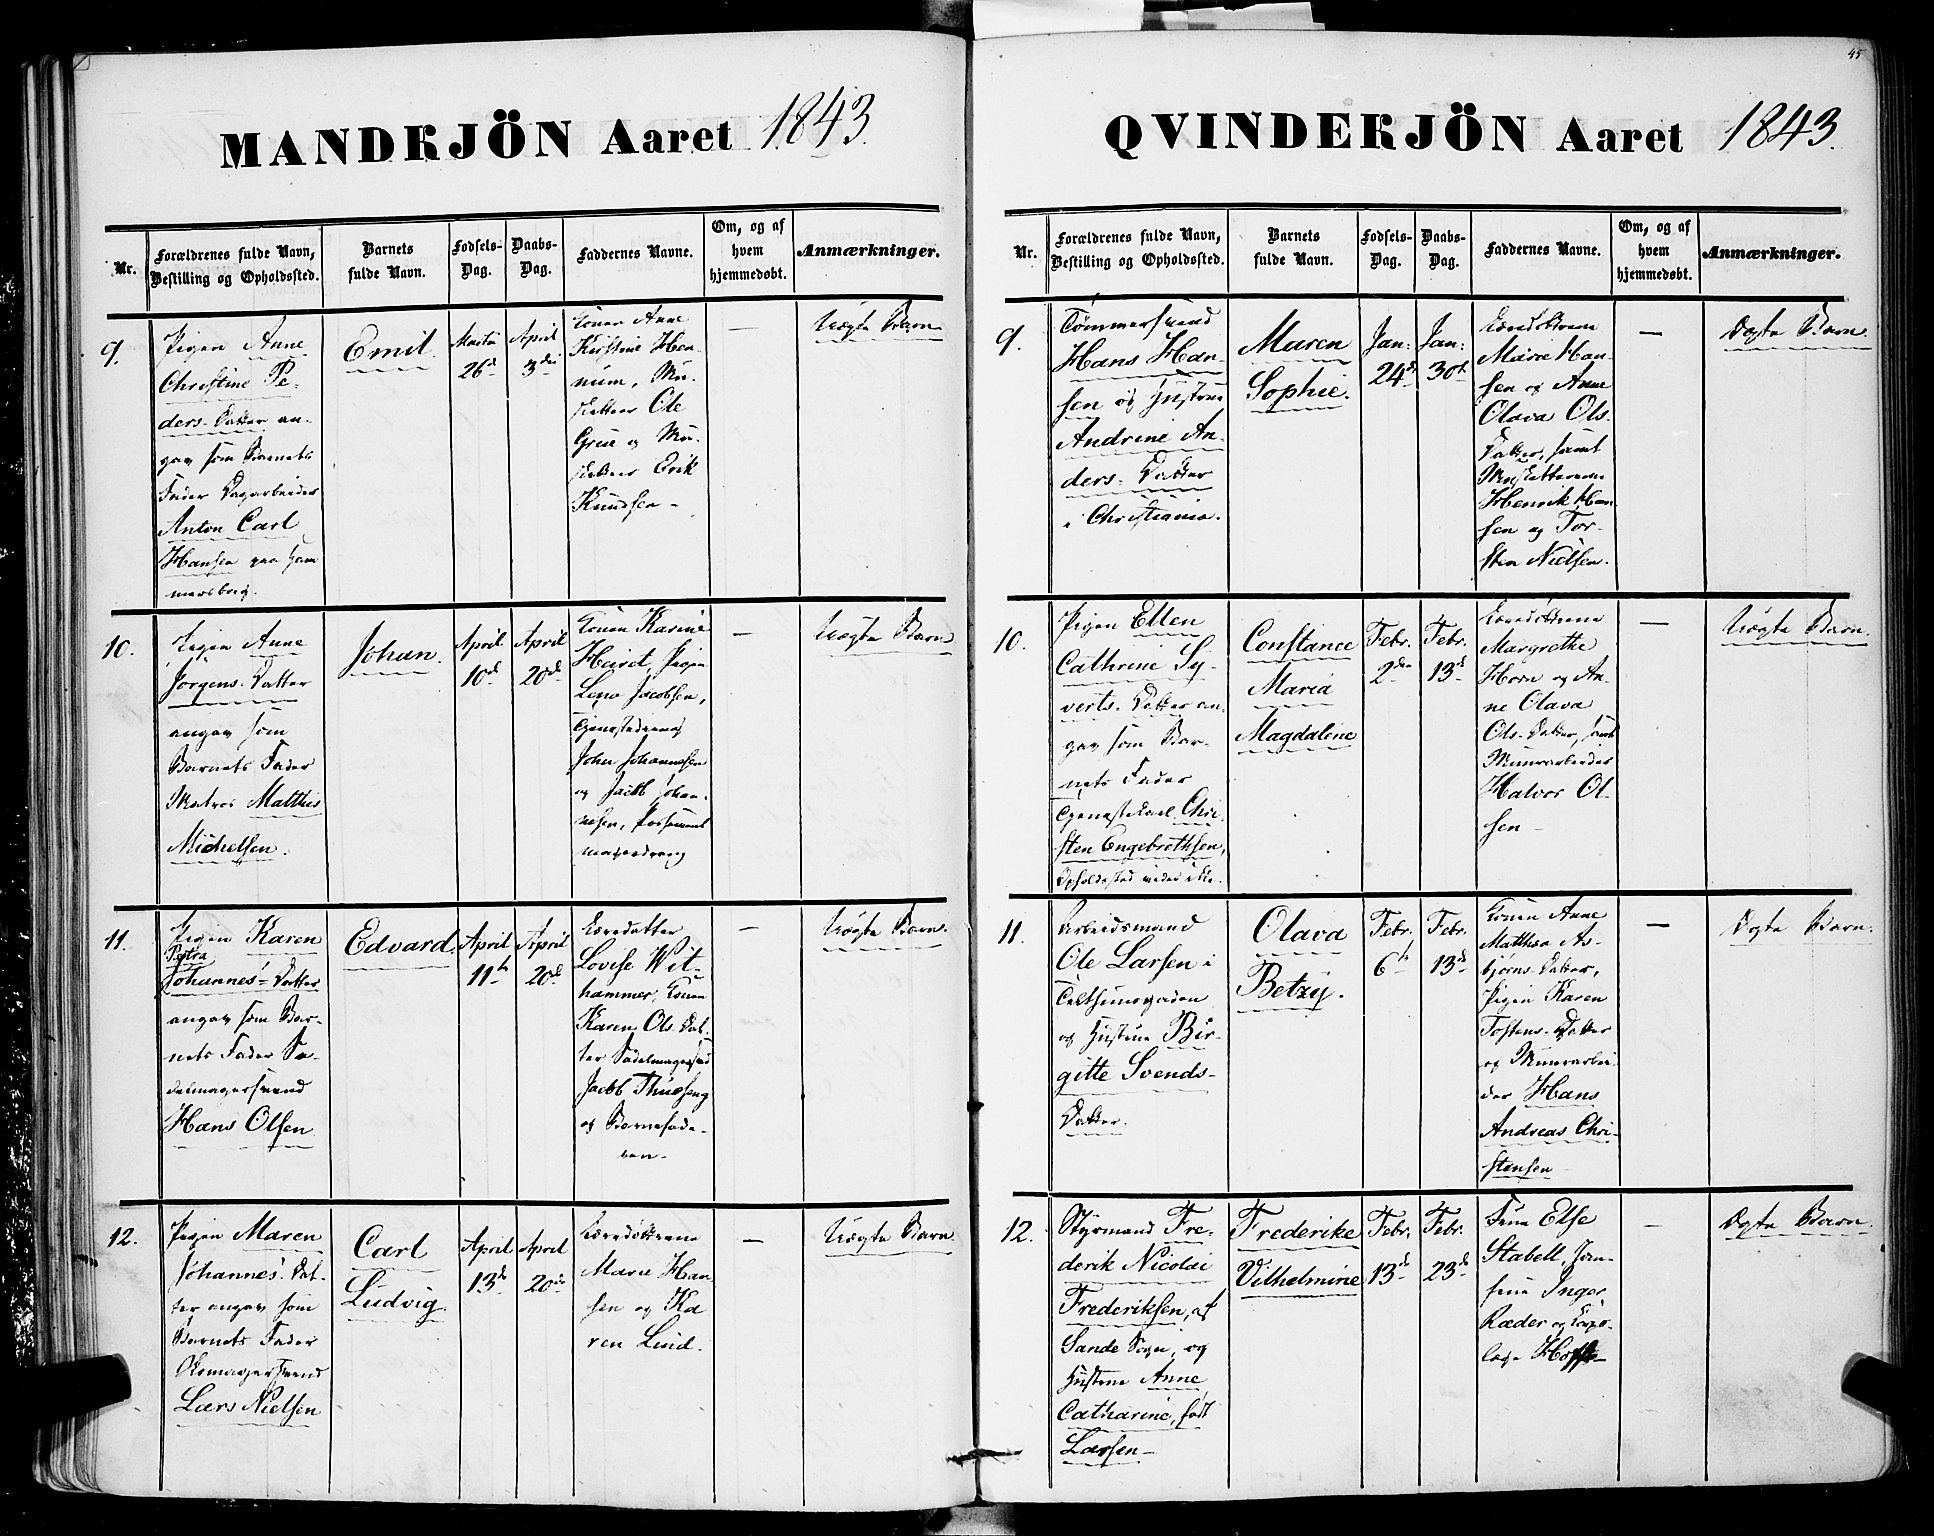 45
MANDKJÖN Aaret 1843.
Nr.
Forældrenes fulde Navn,
Bestilling og Opholdssted.
Barnets
fulde Navn.
Fødsels-
Dag.
Daabs-
Dag.
Faddernes Navne.
Om, og af
hvem
hjemmedøbt.
Anmærkninger.
9.
Pigen Anne
Christine Pe-
ders-Datter an-
gav som Barnets
Fader Dagarbeider
Anton Carl
Hansen paa Ham
mersborg.
Emil
Marts
26d
April
3die
Konen Anne
Kirstine Hen-
num, Mu-
sketeer Ole
Grue og Mu-
sketeer Erik
Knudsen-
—
Uægte Barn
10.
Pigen Anne
Jørgens-Datter
angav som
Barnets Fader
Matros Matthis
Michelsen.
Johan.
April
10de
April
20de
Konen Karine
Heiret, Pigen
Lena Jacobsen,
John Johannesen
og Jacob Johan-
nesen,
—
Uægte Barn
11.
Pigen Karen
Petra
Johannes'-Datter
angav som Bar-
nets Fader Sa-
delmagersvend
Hans Olsen
Edvard.
April
11te
April
20de
Læredatter
Lovise Wit-
hammer, Konen
Karen Ols-Dat-
ter Sadelmagersvend
Jacob
og Barnefade-
ren-
—
Uægte Barn.
12.
Pigen Maren
Johannes'-Dat-
ter angav som
Barnets Fader
Lars Nielsen
Carl
Ludvig.
April
13de
April
20de
Læredøttrene
Marie Han
sen og Ka
ren Lund.
—
Uægte Barn.
QVINDEKJÖN Aaret 1843.
Nr.
Forældrenes fulde Navn,
Bestilling og Opholdssted.
Barnets
fulde Navn.
Fødsels-
Dag.
Daabs-
Dag.
Faddernes Navne.
Om, og af
hvem
hjemmedøbt.
Anmærkninger.
9.
Tømmersvend
Hans Han-
sen og Hustrue
Andrine An-
ders-Datter
i Christiania.
Maren
Sophie.
Jan:
24de
Jan:
30te
Læredøttrene
Marie Han-
sen og Anne
Olava Ols-
Datter, samt
Musketererne
Henrik Han
sen og Tor-
sten Nielsen.
—
Ægte Barn.
10.
Pigen Ellen
Cathrine Sy-
verts-Datter an-
gav som Bar-
nets Fader
Tjenestekarl Chri-
sten Engebrethsen,
Opholdssted vides ikke.
Constance
Maria
Magdalene
Febr.
2den
Febr.
13de
Læredøttrene
Margrethe
Horn og An-
ne Olava
Ols-Datter, samt
Muurarbeider
Halvor Ol-
sen -
—
Uægte Barn.
11.
Arbeidsmand
Ole Larsen i
Telthuusgaden
og Hustrue Bir-
gitte Svends-
Datter.
Olava
Betzy.
Febr.
6te
Febr.
13de
Konen Anne
Matthea As-
bjørns-Datter,
Pigen Karen
Tostens-Datter
og Muurarbei-
der Hans
Andreas Chri-
stensen
—
Ægte Barn.
12.
Styrmand Fre-
derik Nicolai
Frederiksen, af
Sande Sogn, og
Hustrue Anne
Catharine, født
Larsen-
Frederike
Vilhelmine
Febr.
13de
Febr.
23de
Frue Else
Stabell, Jom-
frue Inger
Ræder og Corps-
læge Hoffst
—
Ægte Barn.